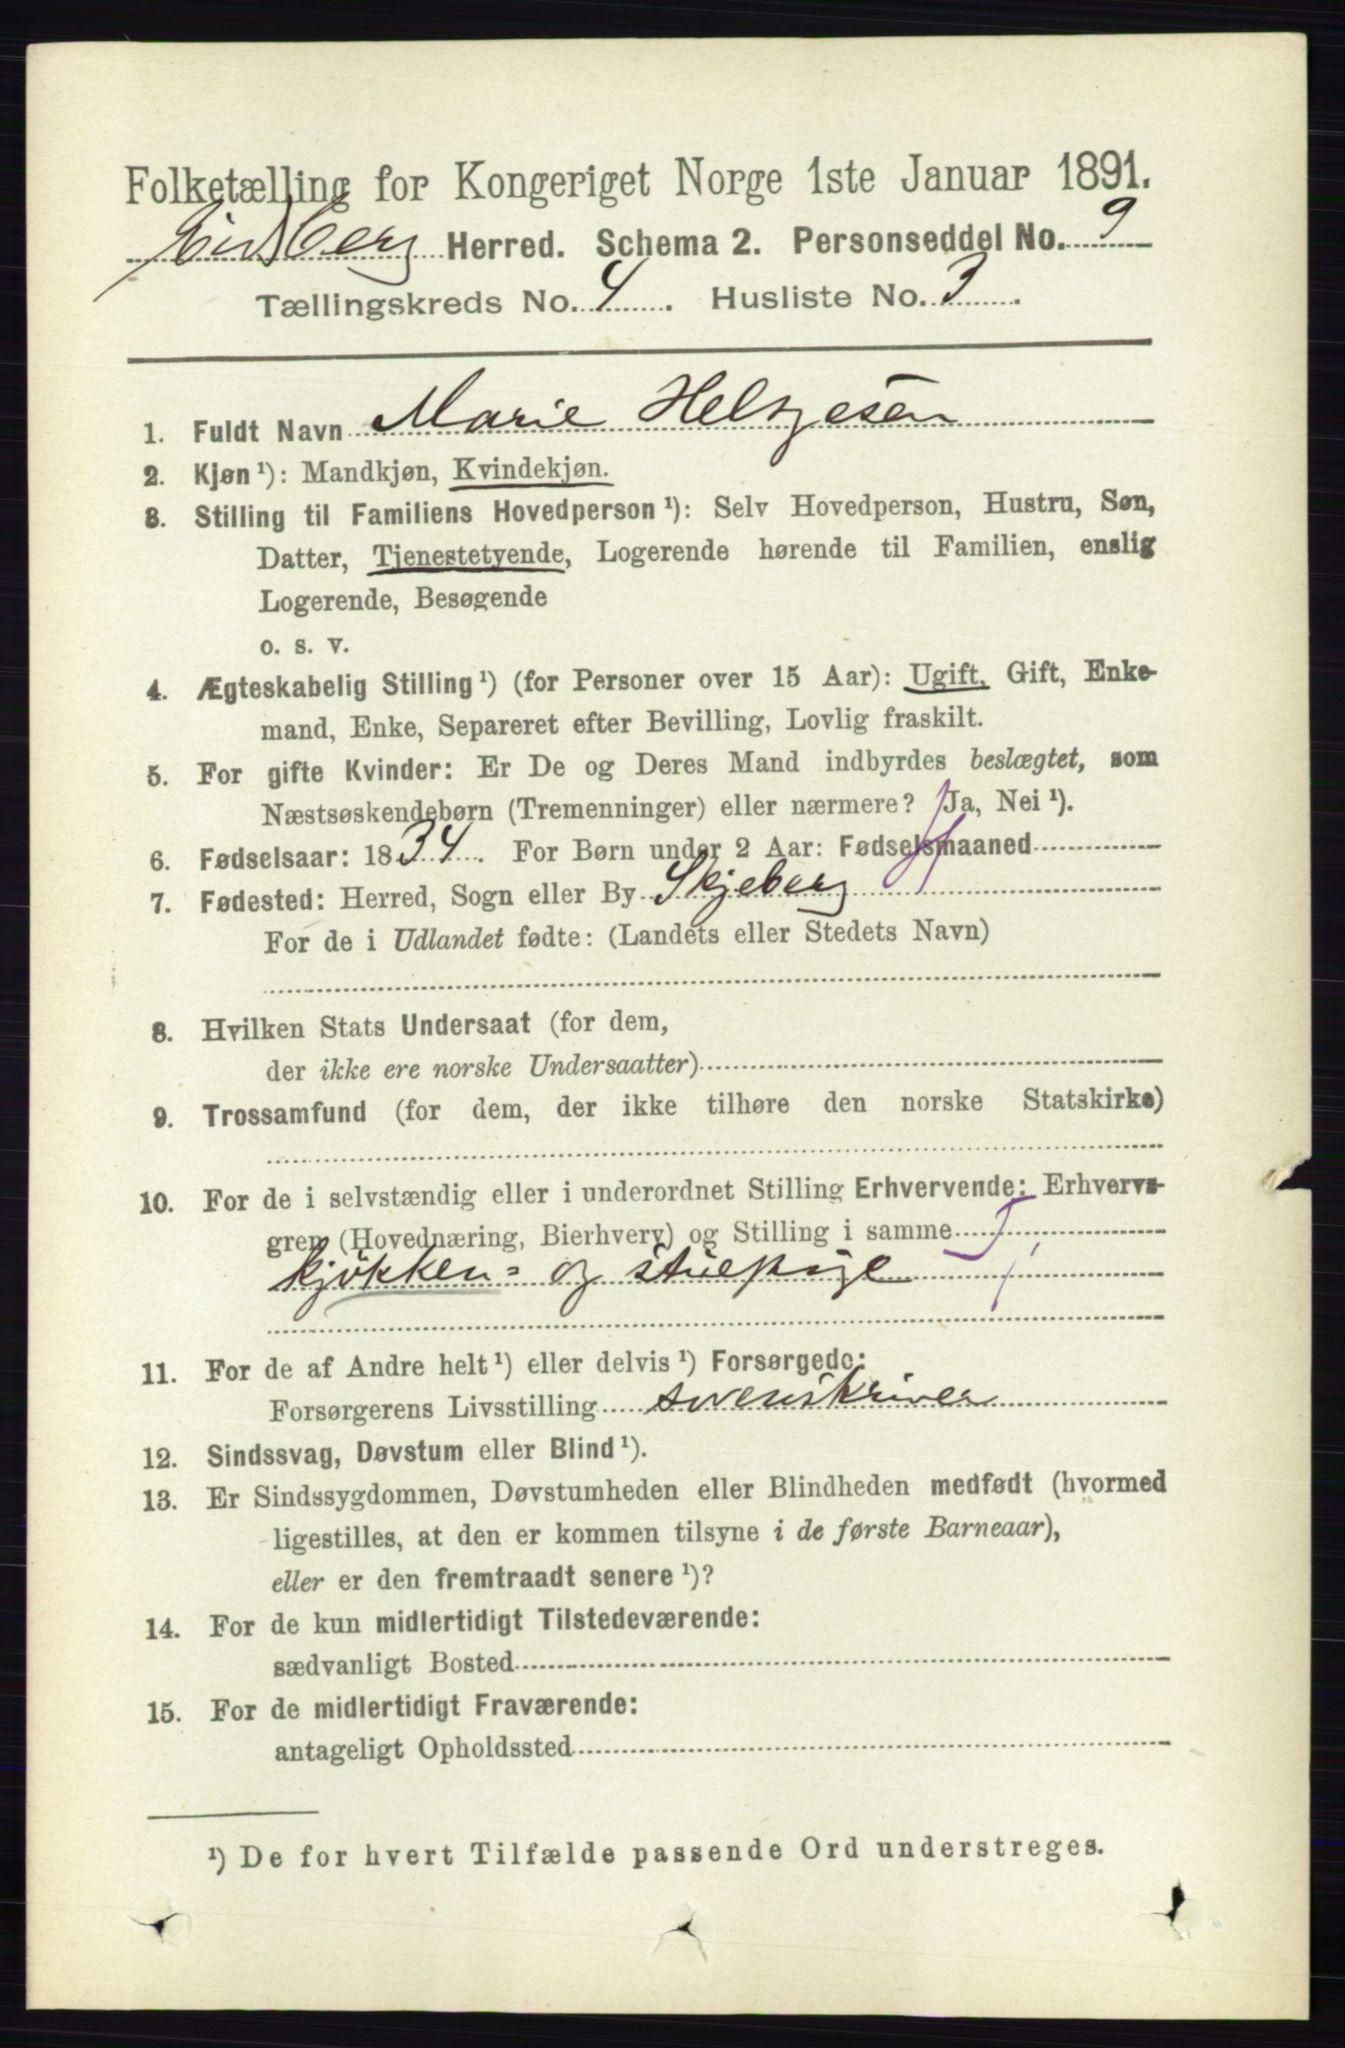 Folketælling for Kongeriget Norge 1ste Januar 1891.
Eidsberg Herred. Schema 2. Personseddel No. 9
Tællingskreds No. 4. Husliste No. 3.
1. Fuldt Navn Marie Helgesen
2. Kjøn¹): Mandkjøn, Kvindekjøn.
3. Stilling til Familiens Hovedperson¹): Selv Hovedperson, Hustru, Søn,
Datter, Tjenestetyende, Logerende hørende til Familien, enslig
Logerende, Besøgende
o. s. v.
4. Ægteskabelig Stilling¹) (for Personer over 15 Aar): Ugift, Gift, Enke-
mand, Enke, Separeret efter Bevilling, Lovlig fraskilt.
5. For gifte Kvinder: Er De og Deres Mand indbyrdes beslægtet, som
Næstsøskendebørn (Tremenninger) eller nærmere? Ja, Nei¹).
6. Fødselsaar: 1834. For Børn under 2 Aar: Fødselsmaaned
7. Fødested: Herred, Sogn eller By Skjeberg
For de i Udlandet fødte: (Landets eller Stedets Navn)
8. Hvilken Stats Undersaat (for dem,
der ikke ere norske Undersaatter)
9. Trossamfund (for dem, der ikke tilhøre den norske Statskirke)
10. For de i selvstændig eller i underordnet Stilling Erhvervende: Erhvervs-
gren (Hovednæring, Bierhverv) og Stilling i samme
kjøkken= og stuepige
11. For de af Andre helt¹) eller delvis¹) Forsørgede:
Forsørgerens Livsstilling sorenskriver
12. Sindssvag, Døvstum eller Blind¹).
13. Er Sindssygdommen, Døvstumheden eller Blindheden medfødt (hvormed
ligestilles, at den er kommen tilsyne i de første Barneaar),
eller er den fremtraadt senere¹)?
14. For de kun midlertidigt Tilstedeværende:
sædvanligt Bosted
15. For de midlertidigt Fraværende:
antageligt Opholdssted
¹) De for hvert Tilfælde passende Ord understreges.